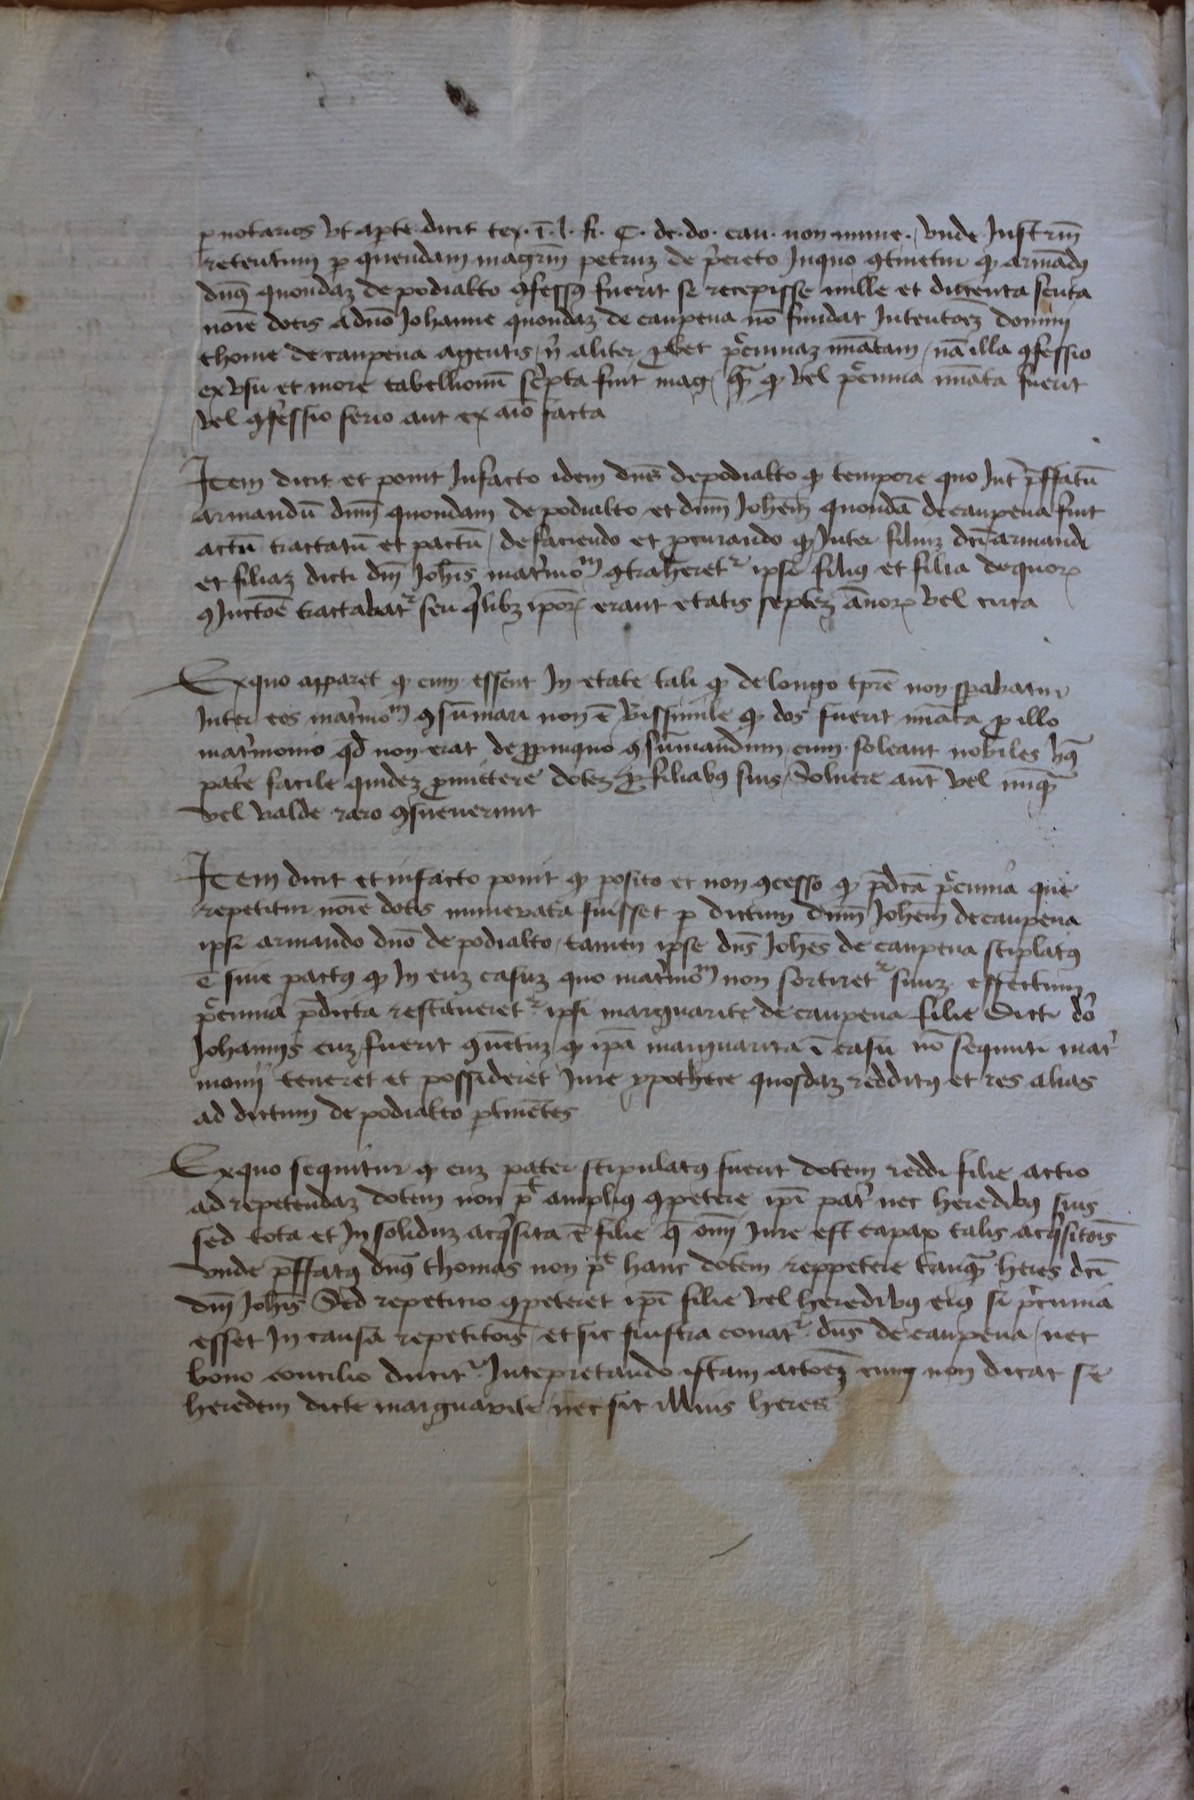 p notarios vt apte dicit tex. ī. l. fi. C. de. do. cau. non nume. vnde Instrm̄
retentum p quendam magrm̄ petruz de p̄ereto Inquo ꝯtinetur ꝙ armādꝰ
dnꝰ quondaz de podialto ꝯfessꝰ fuerit se recepisse mille et ducenta scuta
noīe dotis a dnō Johanne quondaz de caupena nō fundat Intentoēz dominj
thome de caupena agentis nī aliter ꝓbet pecuniaz nūatam / nā illa ꝯfessio
ex vsu et more tabellionū scpta fuit mag̃ ꝙ vel pecunia nūata fuerit
vel ꝯfessio serio aut ex aīo facta
Item dicit et ponit Infacto idem dnꝰ depodialto ꝙ tempore quo Int̄ p̄ffatū
armandū dnm̄ quondam de podialto et dnm̄ Johem̄ quondā de caupena fuit
actū tractatū et pactū / de faciendo et ꝓcurando ꝙ Inter filiuz dcī armandi
et filiaz dicti dnī Johīs mat̄moᵐ ꝯtraheretʳ ipse filiꝰ et filia dequoꝝ
ꝯiuctōe tractabatʳ seu q̄libz ipoꝝ erant etatis septez ānoꝝ vel circa
Exquo apparet ꝙ cum essent In etate tali ꝙ de longo tp̄re non spabatur
Inter eos mat̄moᵐ ꝯsūmari non ē v̄issimile ꝙ dos fuerit nūata p illo
mat̄monio qd̄ non erat de ꝓpinquo ꝯsūmandum cum soleant nobiles hꝰ
pat̄e facile quidez ꝓmittere dotez ꝓ filiabꝰ suis / Soluere aut̄ vel nūqᷓ
vel valde raro ꝯsueuerunt
Item dicit et infacto ponit ꝙ posito et non ꝯcesso ꝙ p̄dcā pecunia que
repetitur noīe dotis numerata fuisset p dictum dnm̄ Johem̄ decaupena
ipsi armando dnō de podialto / tamen ipse dns̄ Johēs de caupena stiplatꝰ
ē siue pactꝰ ꝙ In euz casuz quo mat̄moᵐ non sortiretʳ suuz effectum
pecunia p̄dicta restaueretʳ ipsi marguarite de caupena filie Dicti dn̄i
Johannis cuz fuerit ꝯuētuz ꝙ ip̄a marguarita ī casu nō sequuti mat̄
monij teneret et possideret Iure ypothece quosdaz redditꝰ et res alias
ad dictum de podialto ptinētes
Exquo sequitur ꝙ cuz pater stipulatꝰ fuerit dotem reddi filie actio
ad repetendaz dotem non pt̄ ampliꝰ ꝯpetere ip̄i pat̄ nec heredibꝰ suis
sed tota et In soliduz acq̄sita ē filie q̄ om̄i Iure est capax talis acq̄sitōis
vnde p̄ffatꝰ dnꝰ thomas non pt̄ hanc dotem reppetere tanqᷓ heres dcī
dnī Johīs Sed repeticio ꝯpeteret ip̄i filie vel heredibꝰ eiꝰ si pecunia
esset In causa repetitōis / et sic frustra conatʳ dns̄ de caupena / nec
bono concilio ducitʳ Intepretando istam actoēz cum non dicat se
heredem dicte marguarite nec sit illius heres